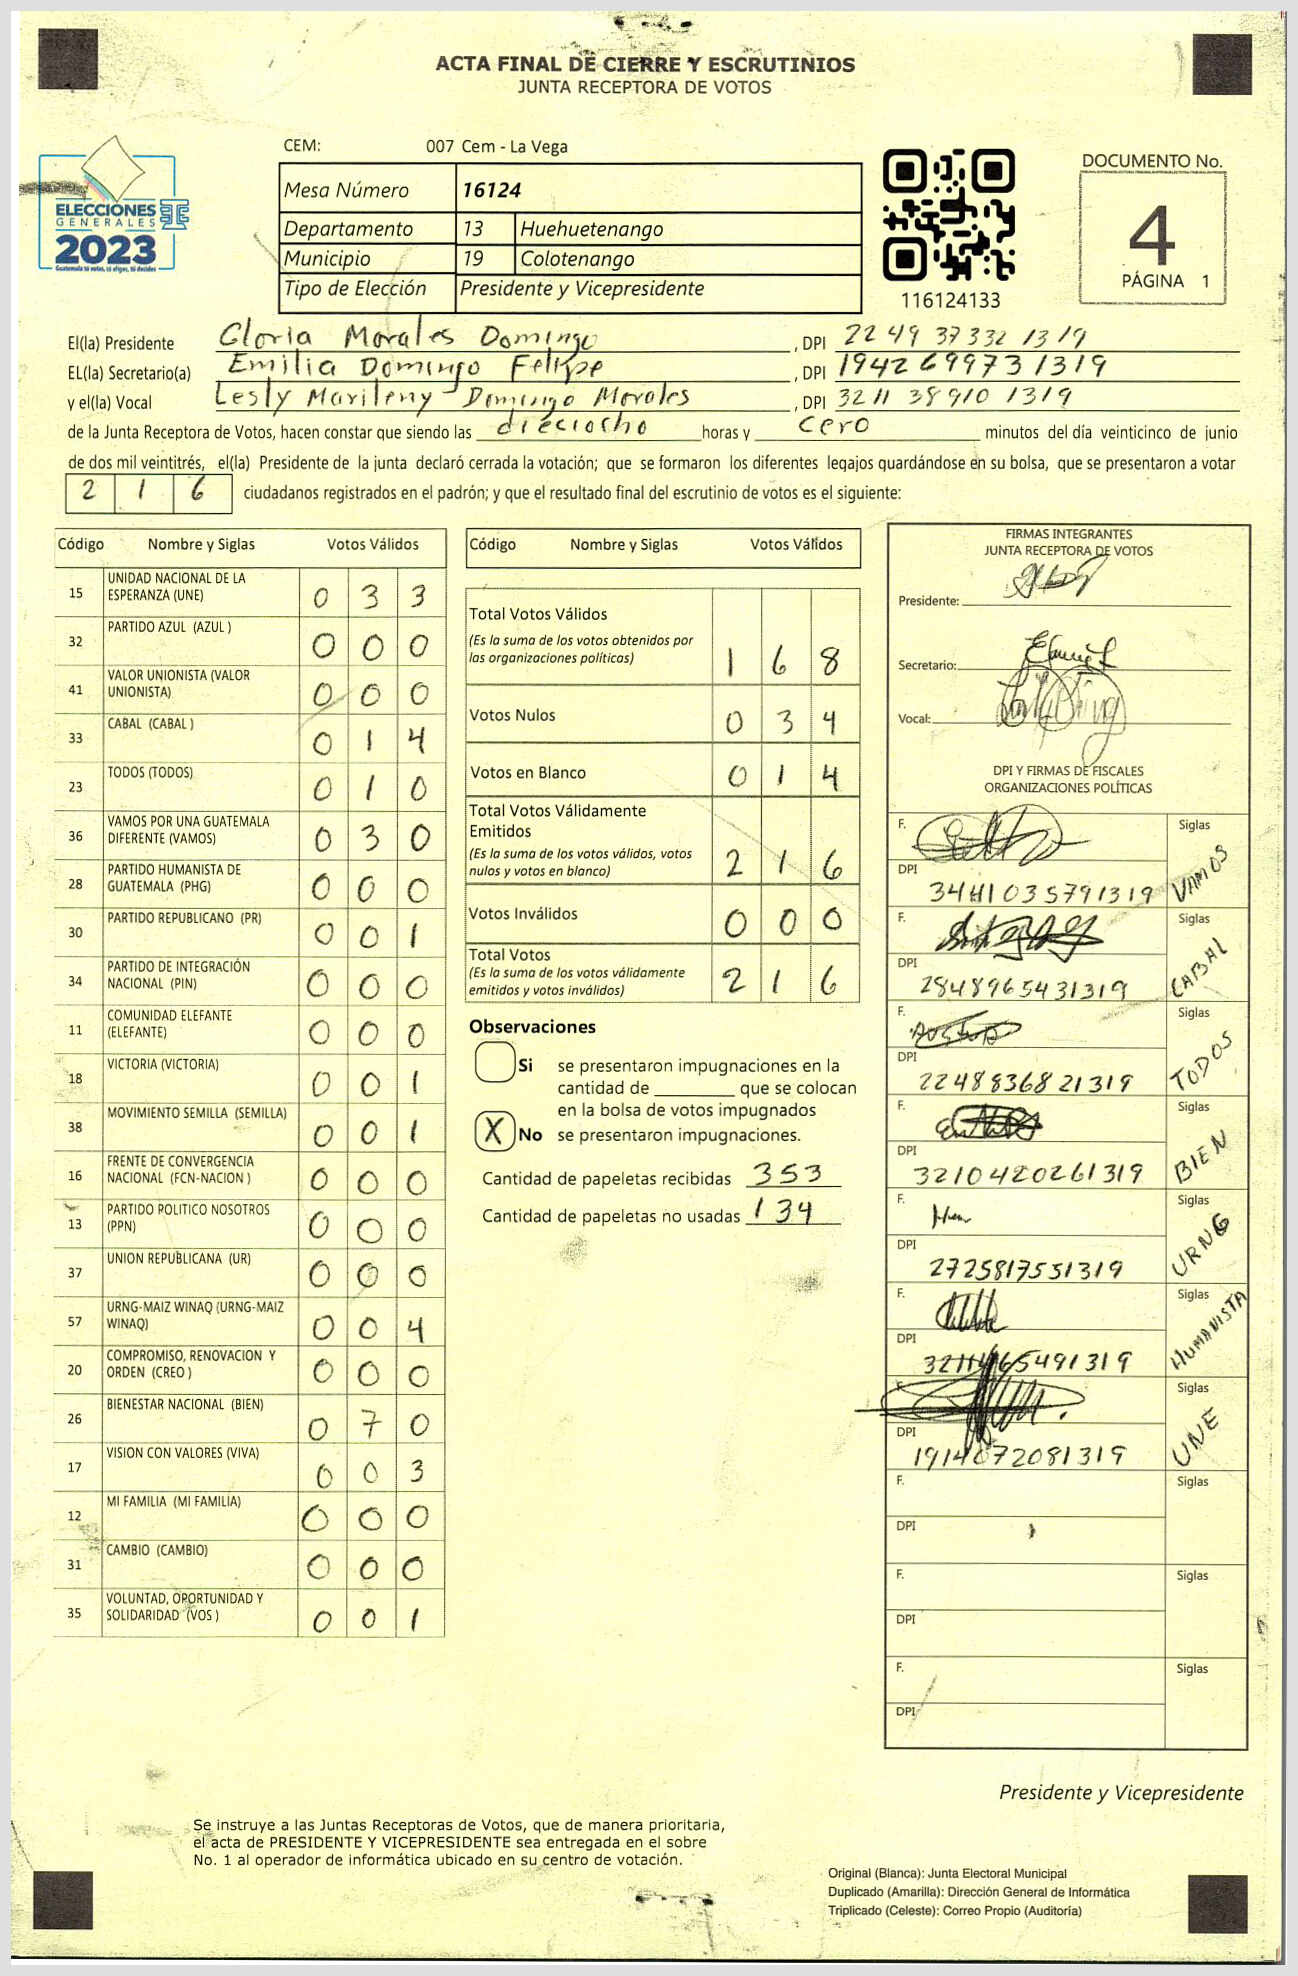 ACTA FINAL DE CIERRE Y ESCRUTINIOS
JUNTA RECEPTORA DE VOTOS
CEM: 007 Cem - La Vega
ELECCIONES
GENERALES
2023
Guatemala tú votas, tú eliges, tú decides
Mesa Número 16124
Departamento 13 Huehuetenango
Municipio 19 Colotenango
Tipo de Elección Presidente y Vicepresidente
116124133
DOCUMENTO No.
4
PÁGINA 1
El(la) Presidente Gloria Morales Domingo, DPI 2249 37332 1319
EL(la) Secretario(a) Emilia Domingo Felipe, DPI 1942699731319
y el(la) Vocal Lesly Marileny Domingo Morales, DPI 3211 38910 1319
de la Junta Receptora de Votos, hacen constar que siendo las dieciocho horas y cero minutos del día veinticinco de junio
de dos mil veintitrés, el(la) Presidente de la junta declaró cerrada la votación; que se formaron los diferentes legajos quardándose en su bolsa, que se presentaron a votar
2 1 6 ciudadanos registrados en el padrón; y que el resultado final del escrutinio de votos es el siguiente:
Código Nombre y Siglas Votos Válidos
15 UNIDAD NACIONAL DE LA ESPERANZA (UNE) 0 3 3
32 PARTIDO AZUL (AZUL ) 0 0 0
41 VALOR UNIONISTA (VALOR UNIONISTA) 0 0 0
33 CABAL (CABAL ) 0 1 4
23 TODOS (TODOS) 0 1 0
36 VAMOS POR UNA GUATEMALA DIFERENTE (VAMOS) 0 3 0
28 PARTIDO HUMANISTA DE GUATEMALA (PHG) 0 0 0
30 PARTIDO REPUBLICANO (PR) 0 0 1
34 PARTIDO DE INTEGRACIÓN NACIONAL (PIN) 0 0 0
11 COMUNIDAD ELEFANTE (ELEFANTE) 0 0 0
18 VICTORIA (VICTORIA) 0 0 1
38 MOVIMIENTO SEMILLA (SEMILLA) 0 0 1
16 FRENTE DE CONVERGENCIA NACIONAL (FCN-NACION ) 0 0 0
13 PARTIDO POLITICO NOSOTROS (PPN) 0 0 0
37 UNION REPUBLICANA (UR) 0 0 0
57 URNG-MAIZ WINAQ (URNG-MAIZ WINAQ) 0 0 4
20 COMPROMISO, RENOVACION Y ORDEN (CREO ) 0 0 0
26 BIENESTAR NACIONAL (BIEN) 0 7 0
17 VISION CON VALORES (VIVA) 0 0 3
12 MI FAMILIA (MI FAMILIA) 0 0 0
31 CAMBIO (CAMBIO) 0 0 0
35 VOLUNTAD, OPORTUNIDAD Y SOLIDARIDAD (VOS ) 0 0 1
Código Nombre y Siglas Votos Válidos
Total Votos Válidos
(Es la suma de los votos obtenidos por
las organizaciones políticas) 1 6 8
Votos Nulos 0 3 4
Votos en Blanco 0 1 4
Total Votos Válidamente
Emitidos
(Es la suma de los votos válidos, votos
nulos y votos en blanco) 2 1 6
Votos Inválidos 0 0 0
Total Votos
(Es la suma de los votos válidamente
emitidos y votos inválidos) 2 1 6
Observaciones
Si se presentaron impugnaciones en la
cantidad de ________ que se colocan
en la bolsa de votos impugnados
X No se presentaron impugnaciones.
Cantidad de papeletas recibidas 353
Cantidad de papeletas no usadas 134
FIRMAS INTEGRANTES
JUNTA RECEPTORA DE VOTOS
Presidente:
Secretario:
Vocal:
DPI Y FIRMAS DE FISCALES
ORGANIZACIONES POLÍTICAS
F. Siglas VAMOS
DPI 3441035791319
F. Siglas CABAL
DPI 2848965431319
F. Siglas TODOS
DPI 2248836821319
F. Siglas BIEN
DPI 3210420261319
F. Siglas URNG
DPI 2725817551319
F. Siglas HUMANISTA
DPI
F. Siglas UNE
DPI
F. Siglas
DPI
F. Siglas
DPI
F. Siglas
DPI
Presidente y Vicepresidente
Se instruye a las Juntas Receptoras de Votos, que de manera prioritaria,
el acta de PRESIDENTE Y VICEPRESIDENTE sea entregada en el sobre
No. 1 al operador de informática ubicado en su centro de votación.
Original (Blanca): Junta Electoral Municipal
Duplicado (Amarilla): Dirección General de Informática
Triplicado (Celeste): Correo Propio (Auditoría)